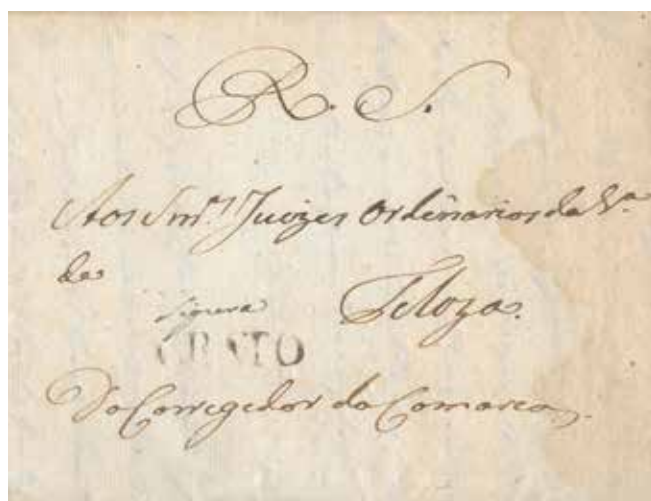 R. S.
Aos Snr.es Juizes Ordinarios da V.a
de
Segura Teloza.
CRATO
Do Corregedor da Comarca